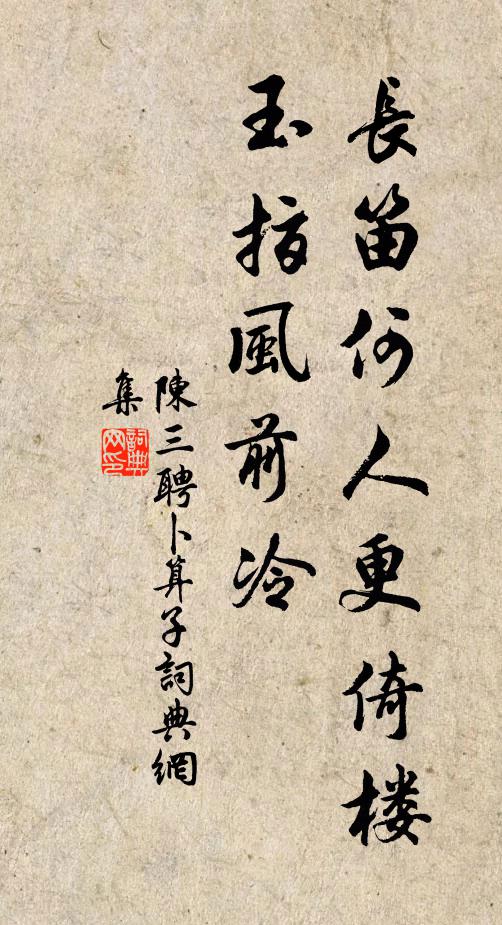 長笛何人更倚楼
玉指風前冷
陳三聘卜算子詞典網
集
詞典网印